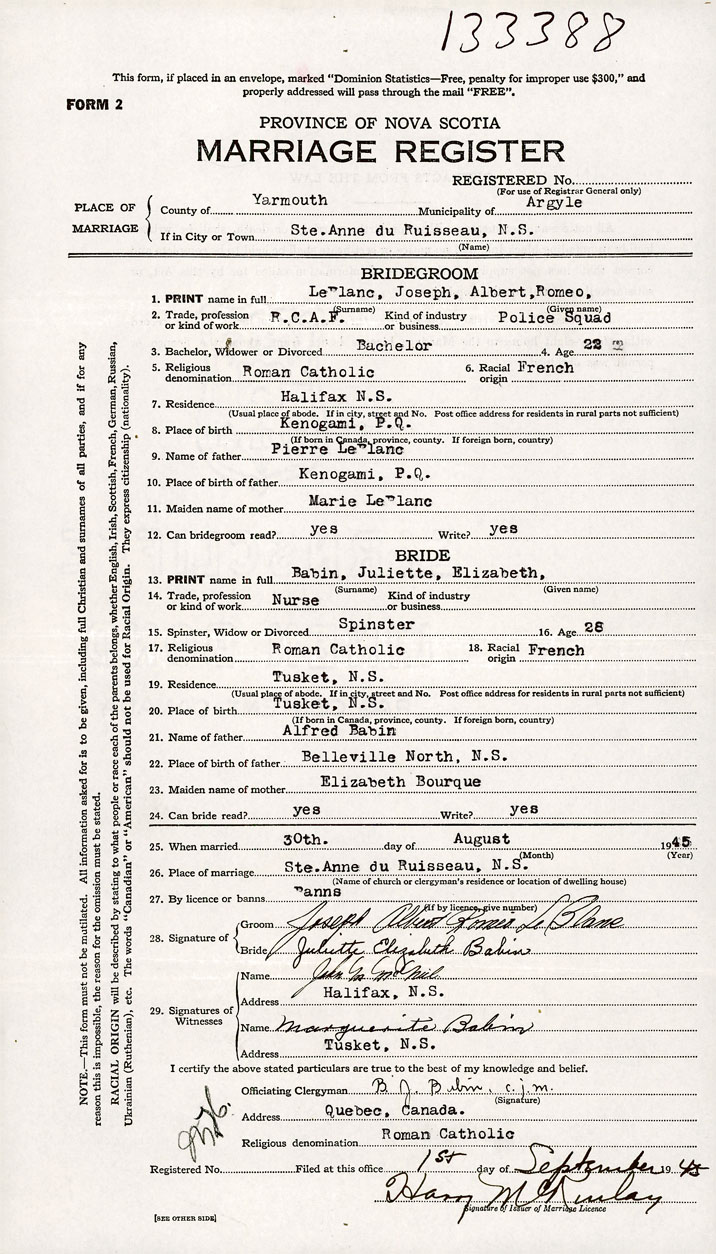 133388
This form, if placed in an envelope, marked "Dominion Statistics—Free, penalty for improper use $300," and
properly addressed will pass through the mail "FREE".
FORM 2
PROVINCE OF NOVA SCOTIA
MARRIAGE REGISTER
REGISTERED No.
(For use of Registrar General only)
PLACE OF MARRIAGE
County of Yarmouth Municipality of Argyle
If in City or Town Ste.Anne du Ruisseau, N.S.
(Name)
BRIDEGROOM
1. PRINT name in full Le lanc, Joseph, Albert,Romeo,
(Surname) (Given name)
2. Trade, profession or kind of work R.C.A.F. Kind of industry or business Police Squad
3. Bachelor, Widower or Divorced Bachelor 4. Age 22
5. Religious denomination Roman Catholic 6. Racial origin French
7. Residence Halifax N.S.
(Usual place of abode. If in city, street and No. Post office address for residents in rural parts not sufficient)
8. Place of birth Kenogami, P.Q.
(If born in Canada, province, county. If foreign born, country)
9. Name of father Pierre Le lanc
10. Place of birth of father Kenogami, P.Q.
11. Maiden name of mother Marie Le lanc
12. Can bridegroom read? yes Write? yes
BRIDE
13. PRINT name in full Babin, Juliette, Elizabeth,
(Surname) (Given name)
14. Trade, profession or kind of work Nurse Kind of industry or business
15. Spinster, Widow or Divorced Spinster 16. Age 26
17. Religious denomination Roman Catholic 18. Racial origin French
19. Residence Tusket, N.S.
(Usual place of abode. If in city, street and No. Post office address for residents in rural parts not sufficient)
20. Place of birth Tusket, N.S.
(If born in Canada, province, county. If foreign born, country)
21. Name of father Alfred Babin
22. Place of birth of father Belleville North, N.S.
23. Maiden name of mother Elizabeth Bourque
24. Can bride read? yes Write? yes
25. When married 30th. day of August 1945
(Month) (Year)
26. Place of marriage Ste.Anne du Ruisseau, N.S.
(Name of church or clergyman's residence or location of dwelling house)
27. By licence or banns anns
(If by licence, give number)
28. Signature of
Groom Joseph Albert Romeo Le Blanc
Bride Juliette Elizabeth Babin
29. Signatures of Witnesses
Name John McNeil
Address Halifax, N.S.
Name Marguerite Babin
Address Tusket, N.S.
I certify the above stated particulars are true to the best of my knowledge and belief.
Officiating Clergyman B. J. Babin, c.j.m.
(Signature)
Address Quebec, Canada.
Religious denomination Roman Catholic
Registered No. Filed at this office 1st day of September 1945
Harry McKinlay
Signature of Issuer of Marriage Licence
[SEE OTHER SIDE]
NOTE.—This form must not be mutilated. All information asked for is to be given, including full Christian and surnames of all parties, and if for any
reason this is impossible, the reason for the omission must be stated.
RACIAL ORIGIN will be described by stating to what people or race each of the parents belongs, whether English, Irish, Scottish, French, German, Russian,
Ukrainian (Ruthenian), etc. The words "Canadian" or "American" should not be used for Racial Origin. They express citizenship (nationality).